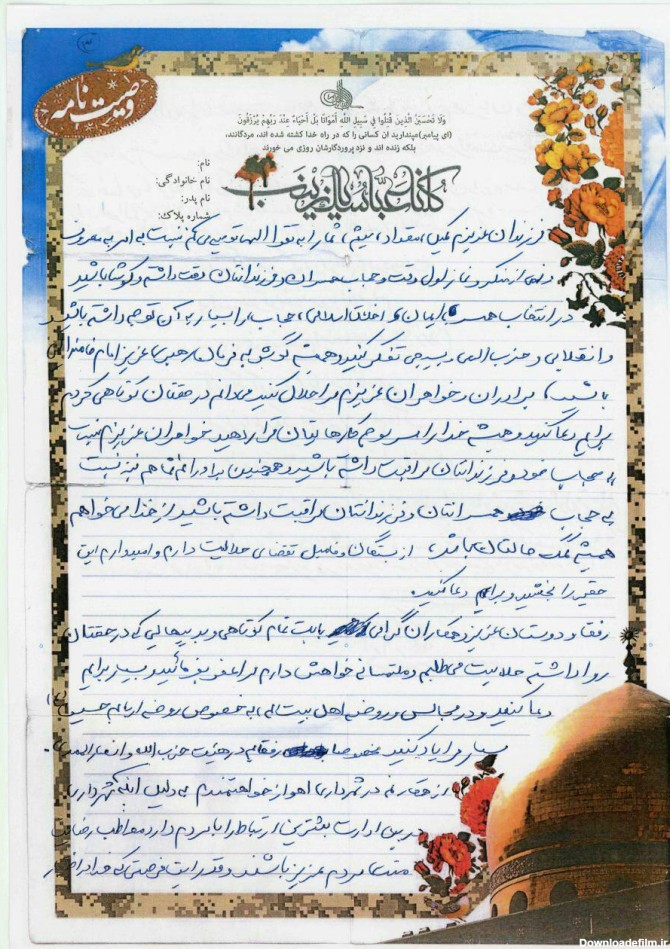 وصیت نامه
وَلا تَحسَبَنَّ الَّذینَ قُتِلُوا فِی سَبِیلِ اللَّهِ أَمْوَاتًا بَلْ أَحْيَاءٌ عِنْدَ رَبِّهِمْ يُرْزَقُونَ
(ای پیامبر)مپندارید ان کسانی را که در راه خدا کشته شده اند، مردگانند،
بلکه زنده اند و نزد پروردگارشان روزی می خورند
کلنا عباسک یا زینب
نام:
نام خانوادگی:
نام پدر:
شماره پلاک:
فرزندان عزیزم کمیل، مقداد، میثم، شما را به تقوا الهی توصیه می کنم نسبت به امر به معروف
و نهی از منکر و نماز اول وقت و حجاب همسران و فرزندانتان دقت داشته و کوشا باشید
در انتخاب همسر با ایمان و اخلاق اسلامی، حجاب را بسیار به آن توجه داشته باشید
و انقلابی و حزب الهی و بسیجی تفکر کنید و همیشه گوش به فرمان رهبری عزیز امام خامنه ای
باشید، برادران و خواهران عزیزم مرا حلال کنید می دانم در حقتان کوتاهی کردم
برایم دعا کنید و همیشه خدا را سر لوحه کارهایتان قرار دهید خواهران عزیزم نسبت
به حجاب خود و فرزندانتان مراقبت داشته باشید و همچنین برادرانم شما هم نیز نسبت
بی حجاب همسرانتان و فرزندانتان مراقبت داشته باشید از خدا می خواهم
همیشه کمک حالتان باشد، از بستگان و فامیل تقضای حلالیت دارم و امیدوارم این
حقیر را ببخشید و برایم دعا کنید.
رفقا و دوستان عزیز و همکاران گرامی بابت تمام کوتاهی و بدیهایی که در حقتان
روا داشتم حلالیت می طلبم و ملتمسانه خواهش دارم مرا عفو بفرمائید و بسیار برایم
دعا کنید و در مجالس و روضه اهل بیت، به خصوص روضه اربابم حسین
بسیار مرا یاد کنید مخصوصا رفقایم در هیئت حزب الله و انصار المهدی.
از همکارانم در شهرداری اهواز خواهشمندم به دلیل اینکه شهرداری
در بین ادارات بیشترین ارتباط را با مردم دارد مواظب رضایت
مردم عزیز باشند و قدر این فرصتی که خدا در
Downloadefilm.ir